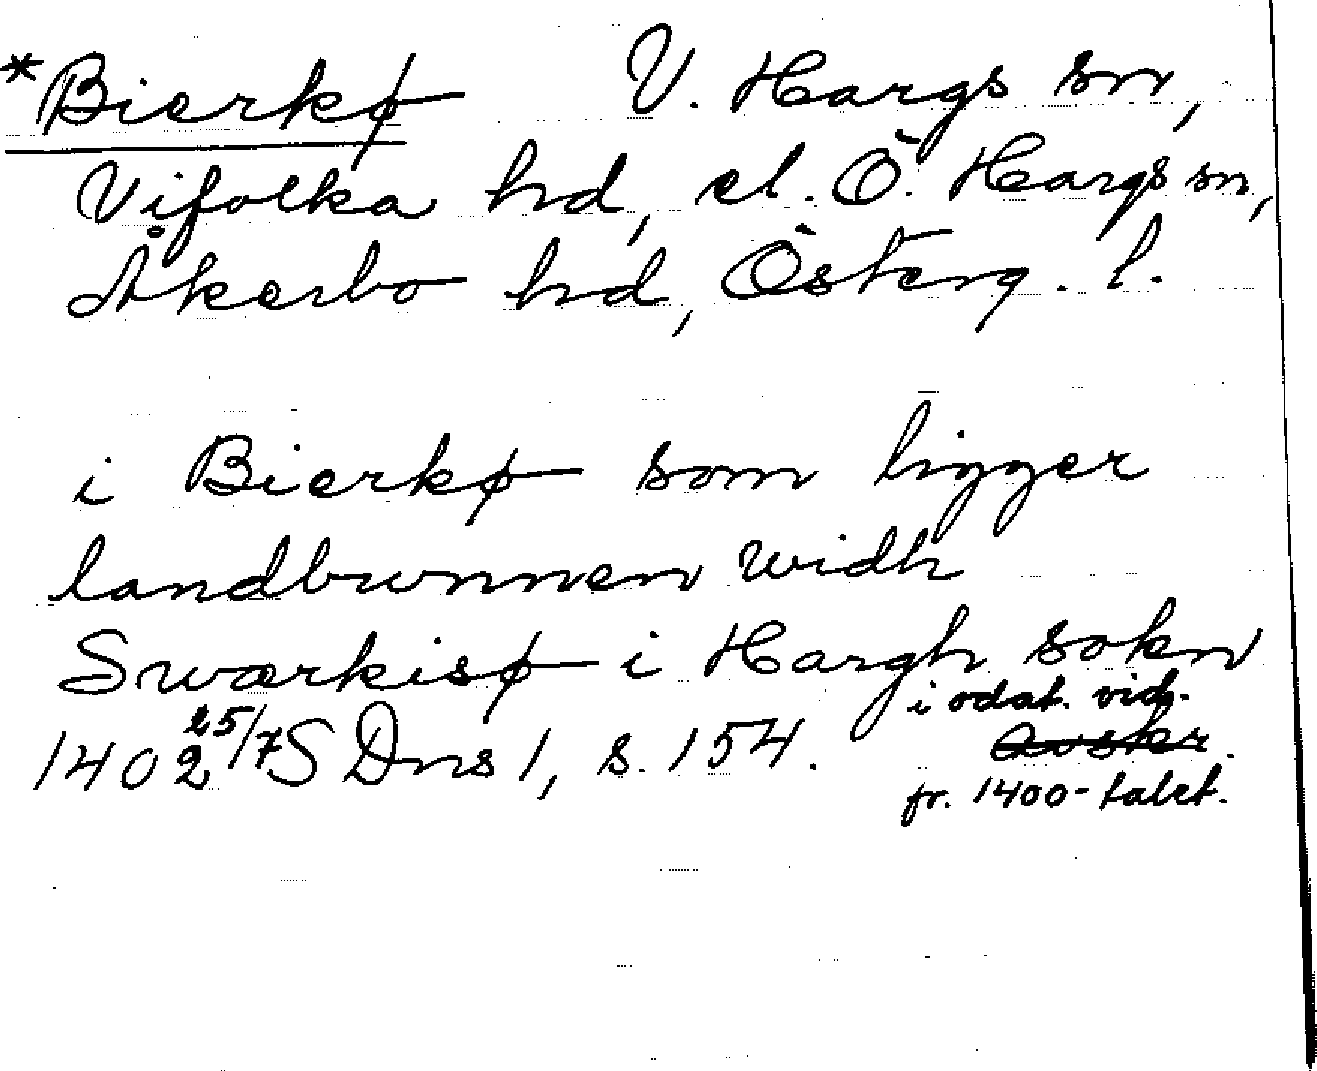 *Bierkø V. Hargs sn,
Vifolka hd, el. Ö. Hargs sn,
Åkerbo hd, Österg. l.
i Bierkø som ligger
landbunnen widh
Swærkisø i Hargh sokn
1402 25/7 SDns 1, s. 154. i odat. vid.
fr. 1400-talet.